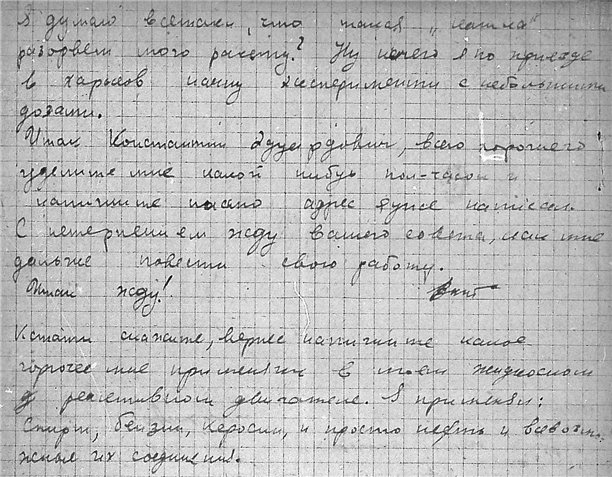 Я думаю всетаки, что такая „
разорвет мою ракету? Ну ничего я по приезде
в Харьков начну эксперименти с небольшими
дозами.
Итак Константин Эдуардович, всего хорошего
уделите мне какой нибудь пол-часок и
напишите письмо адрес я уже написал.
С нетерпением жду вашего совета, как мне
дальше повести свою работу.
Итак жду!
Кстати скажите, вернее напишите какое
горючее мне применять в моем жидкосном
реактивном двигателе. Я применял:
Спирт, бензин, керосин, и просто нефть и всевозмо-
жные их соединения.